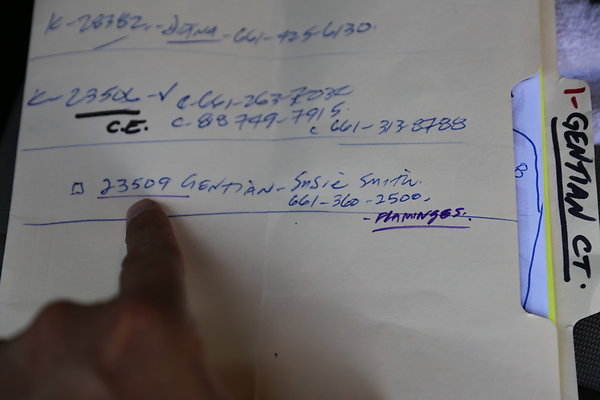 K-28382.-DIANA-661-425-6130.
K-23506-V C-661-263-7030
C.E. C-818 749-7915.
C 661-313-8788
□ 23509 GENTIAN-SUSIE SMITH.
661-360-2500.
-FLAMINGES.
1-GENTIAN CT.
8